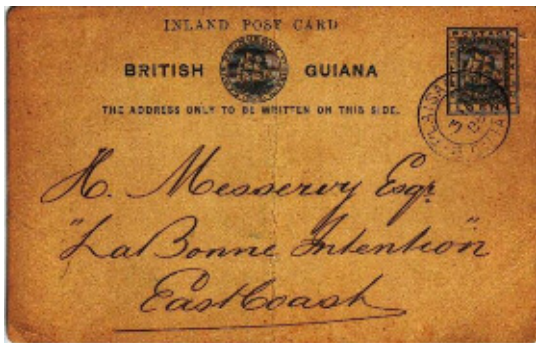 INLAND POST CARD
BRITISH GUIANA
THE ADDRESS ONLY TO BE WRITTEN ON THIS SIDE.
POSTAGE
H. Messervy Esqr.
"La Bonne Intention"
East Coast